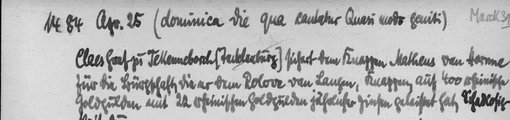 1484 Apr. 25 (dominica die qua cantatur Quasi modo geniti) March 31
Claes Graf zu Tekenneborch [Tecklenburg] sichert dem Knappen Matheus van Horne
für die Bürgschaft, die er dem Rolove van Langen, Knappen, auf 400 rheinische
Goldgulden mit 22 rheinischen Goldgulden jährlicher Zinsen geleistet hat, Schadlosig-